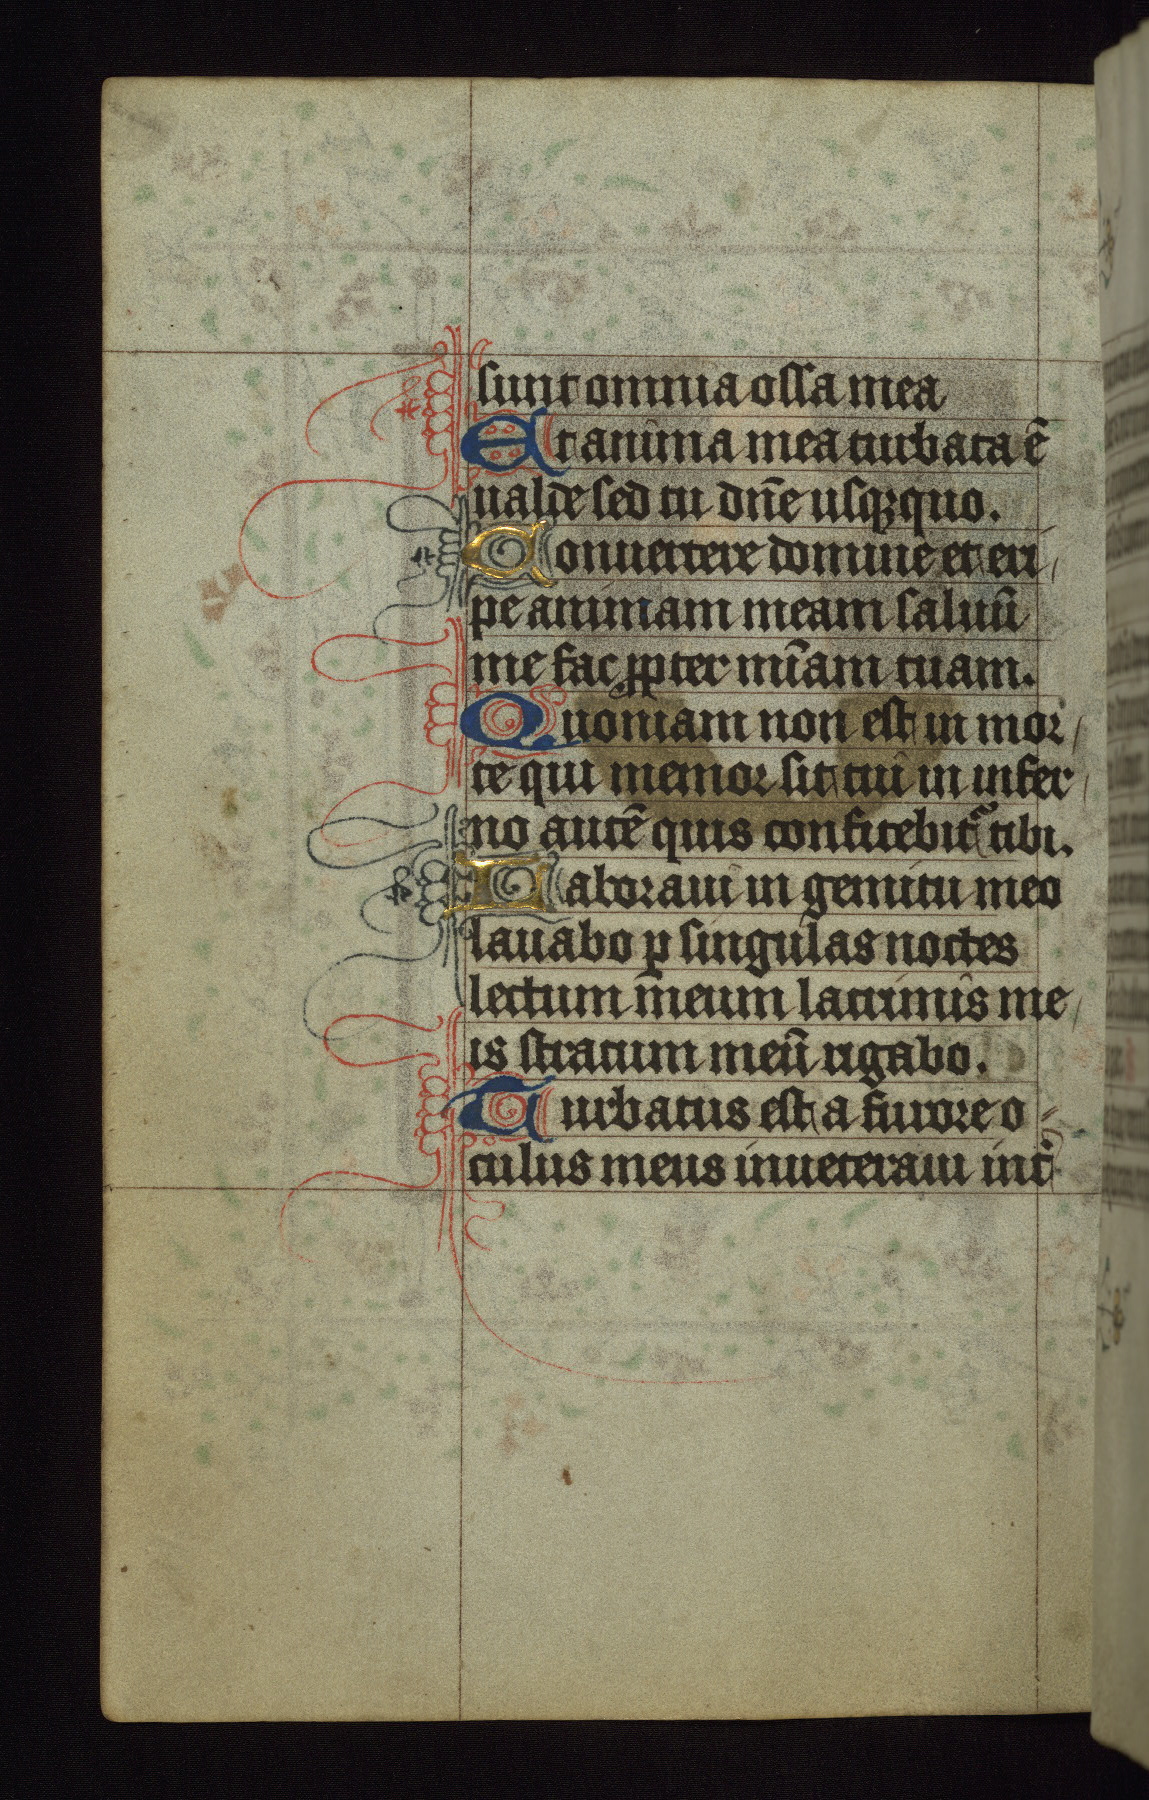 sunt omnia ossa mea
Et anima mea turbata ē
ualde sed tu dn̄e usqꝫquo.
Conuertere domine et eri
pe animam meam saluū
me fac ꝓpter mīam tuam.
Quoniam non est in mor
te qui memor sit tui in infer
no autē quis confitebit᷑ tibi.
Laboraui in gemitu meo
lauabo ꝑ singulas noctes
lectum meum lacrimis me
is stratum meū rigabo.
Turbatus est a furore o
culus meus inueteraui int᷑